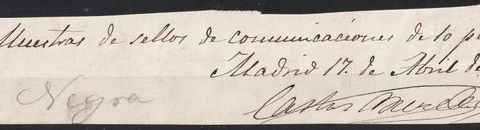 Muestras de sellos de comunicaciones de 10 p
Madrid 17. de Abril de
Negra
Carlos